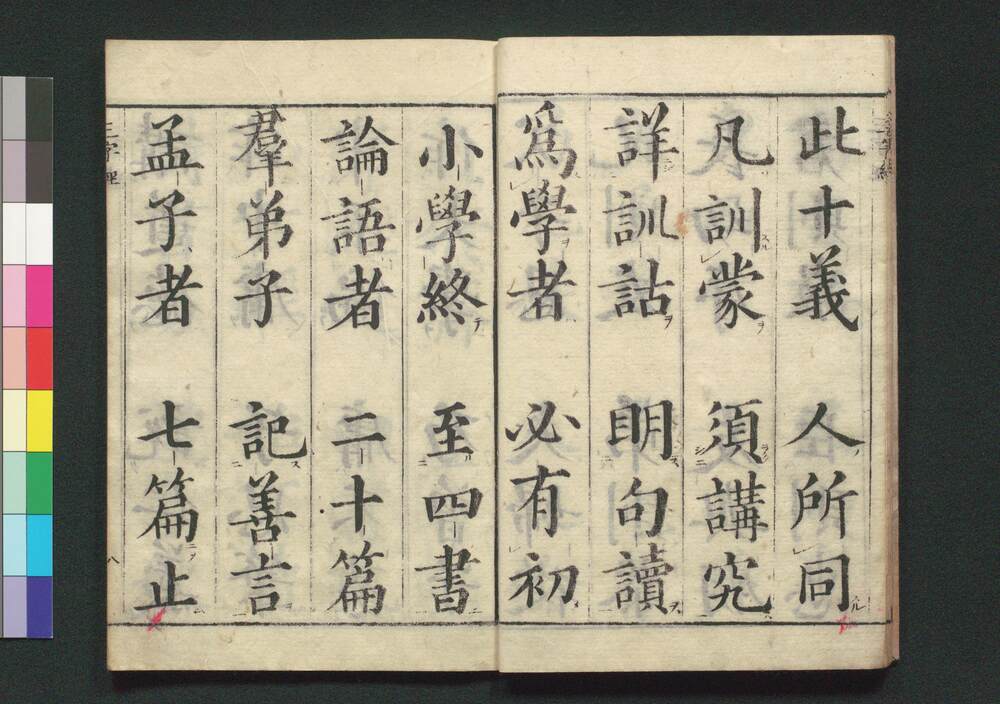 此十義 人所同
凡訓蒙 須講究
詳訓詁 明句讀
爲學者 必有初
小學終 至四書
論語者 二十篇
羣弟子 記善言
孟子者 七篇止